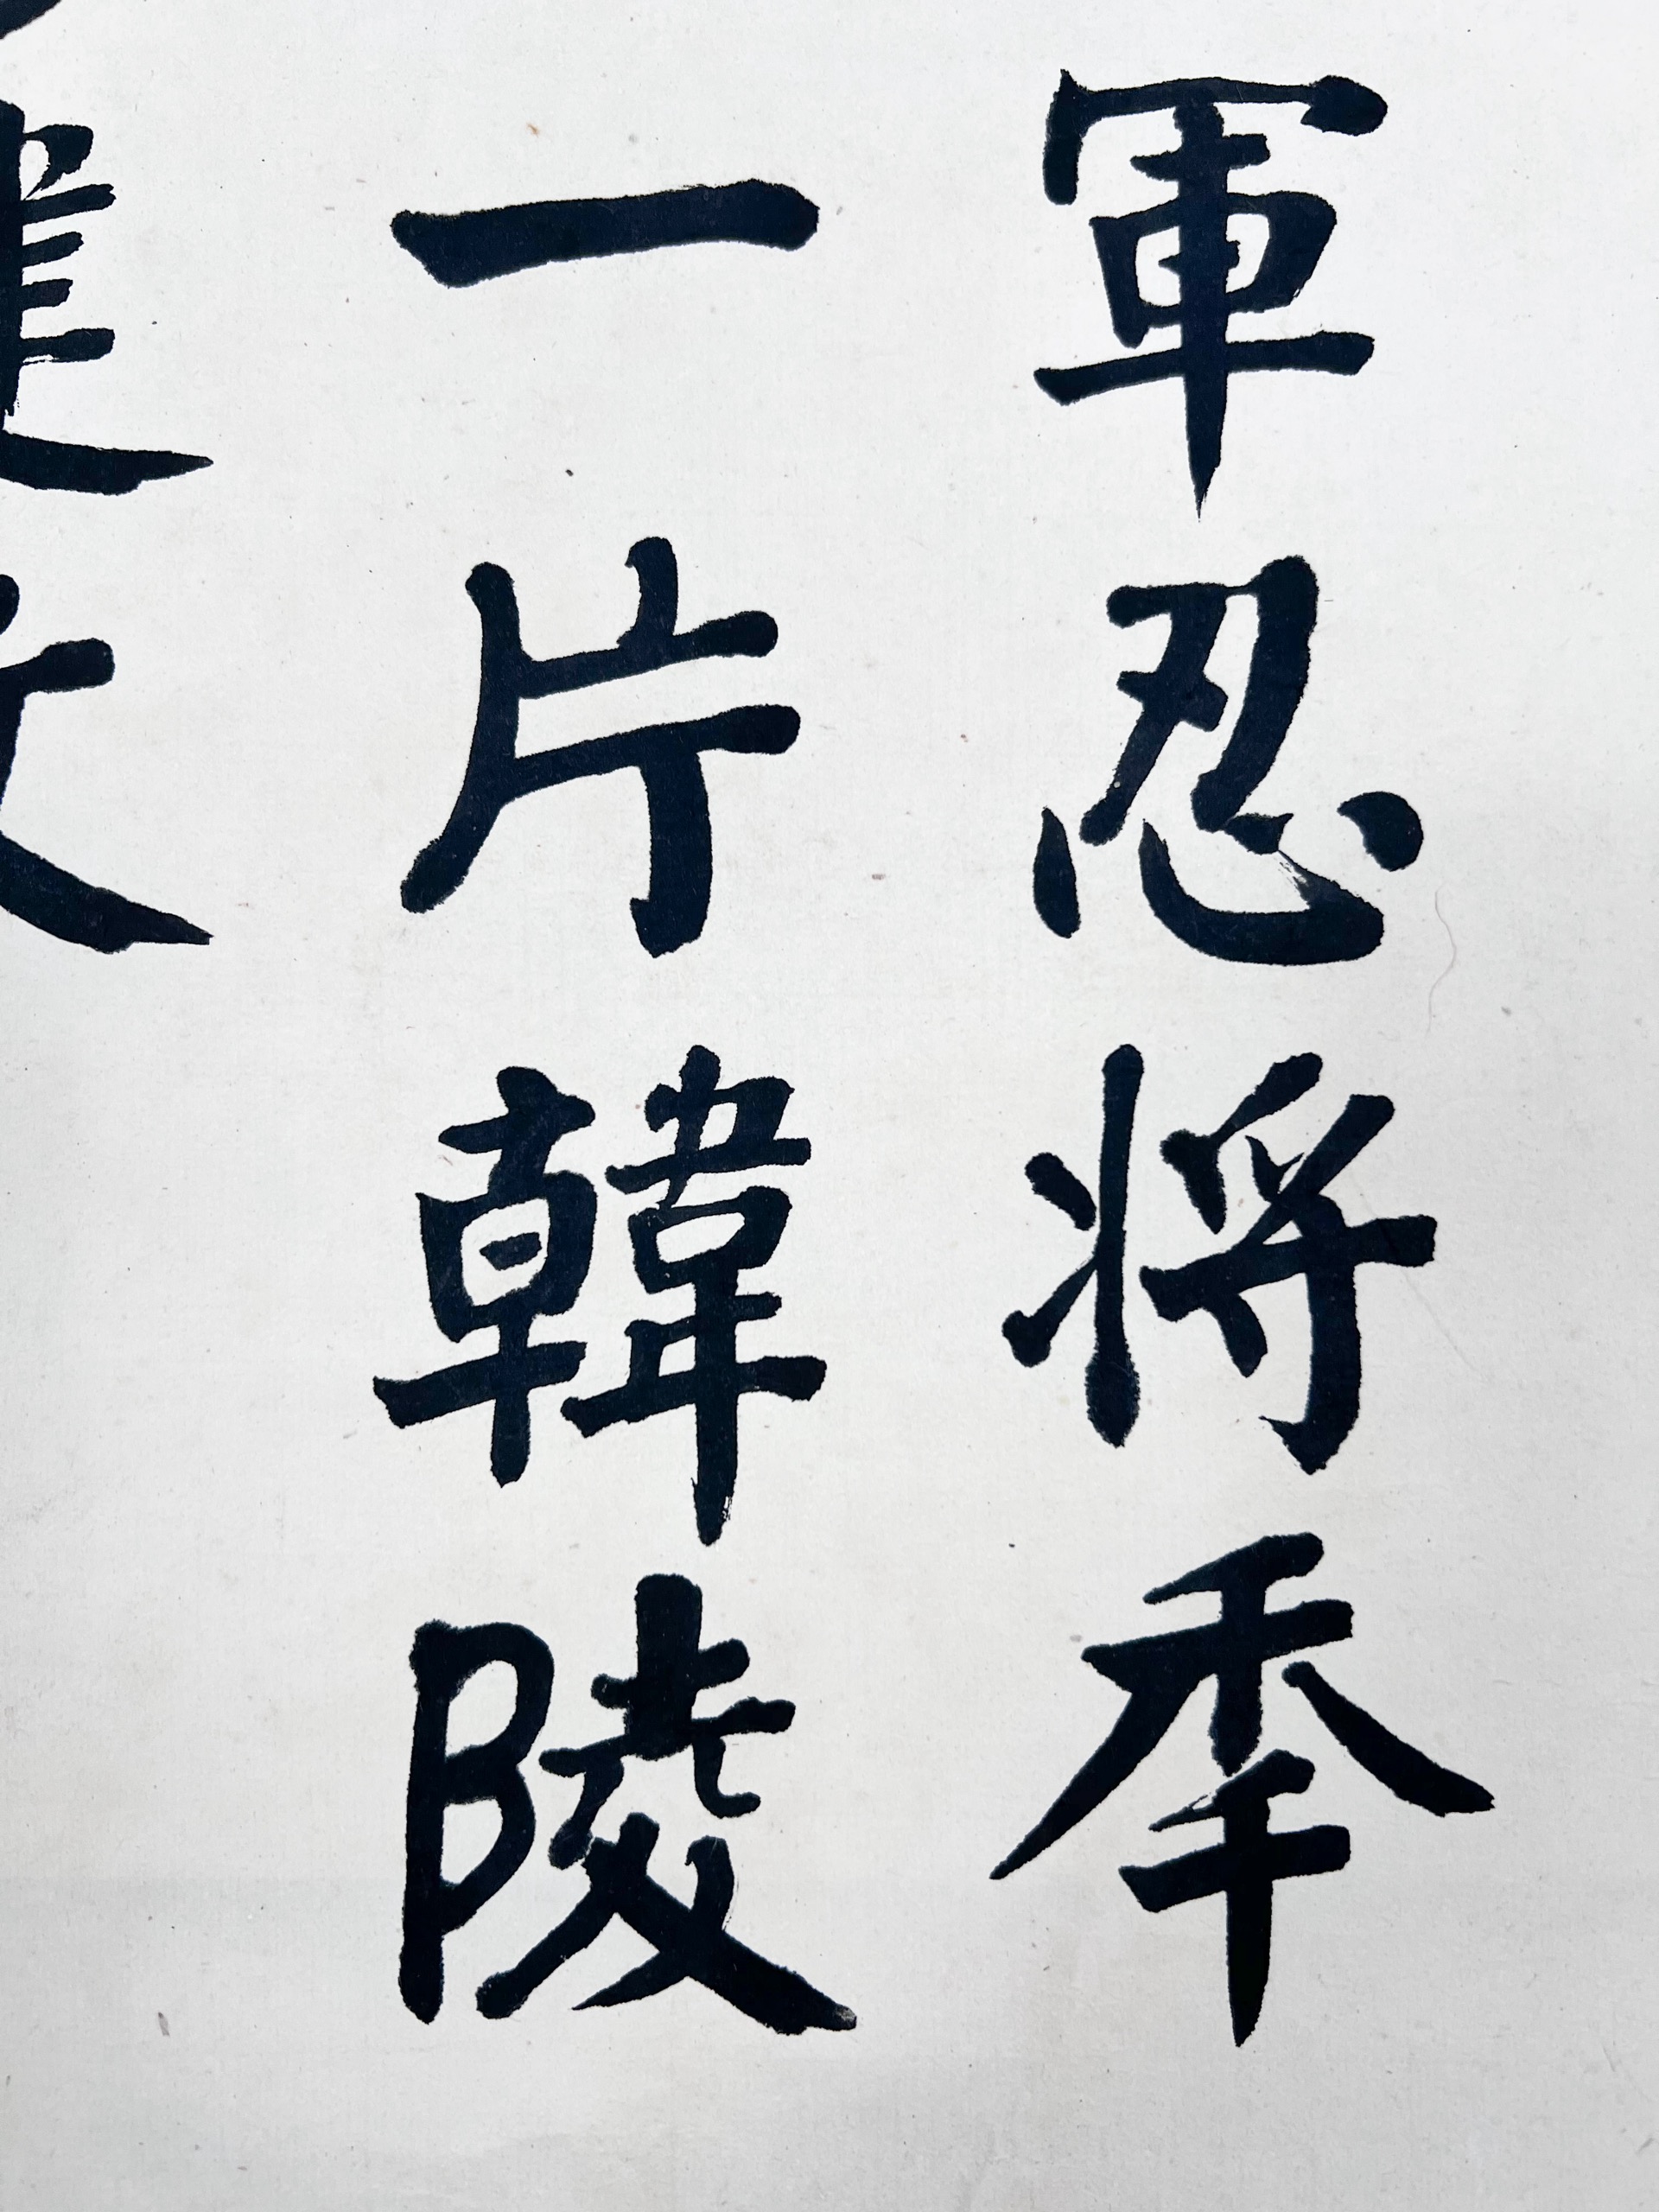 軍忍将秊
一片韓陵